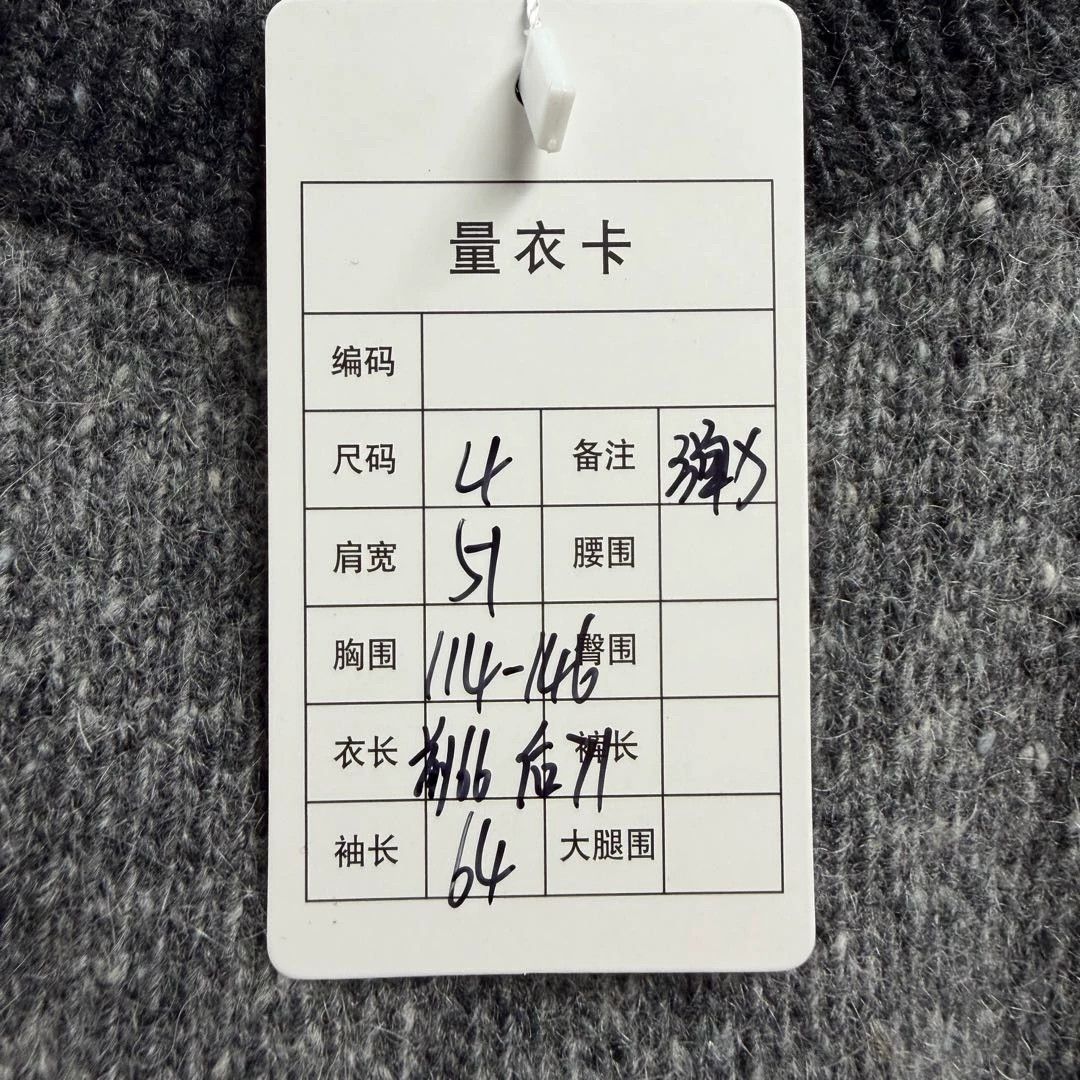 量衣卡
编码
尺码 4 备注 弹力
肩宽 51 腰围
胸围 114-146 臀围
衣长 前66 后71 裤长
袖长 64 大腿围